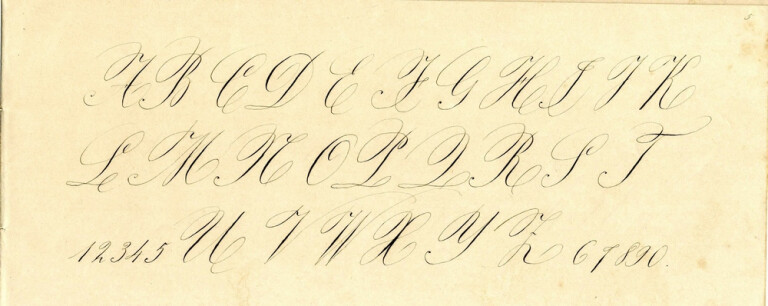 5
A B C D E F G H I J K
L M N O P Q R S T
1 2 3 4 5 U V W X Y Z 6 7 8 9 0.